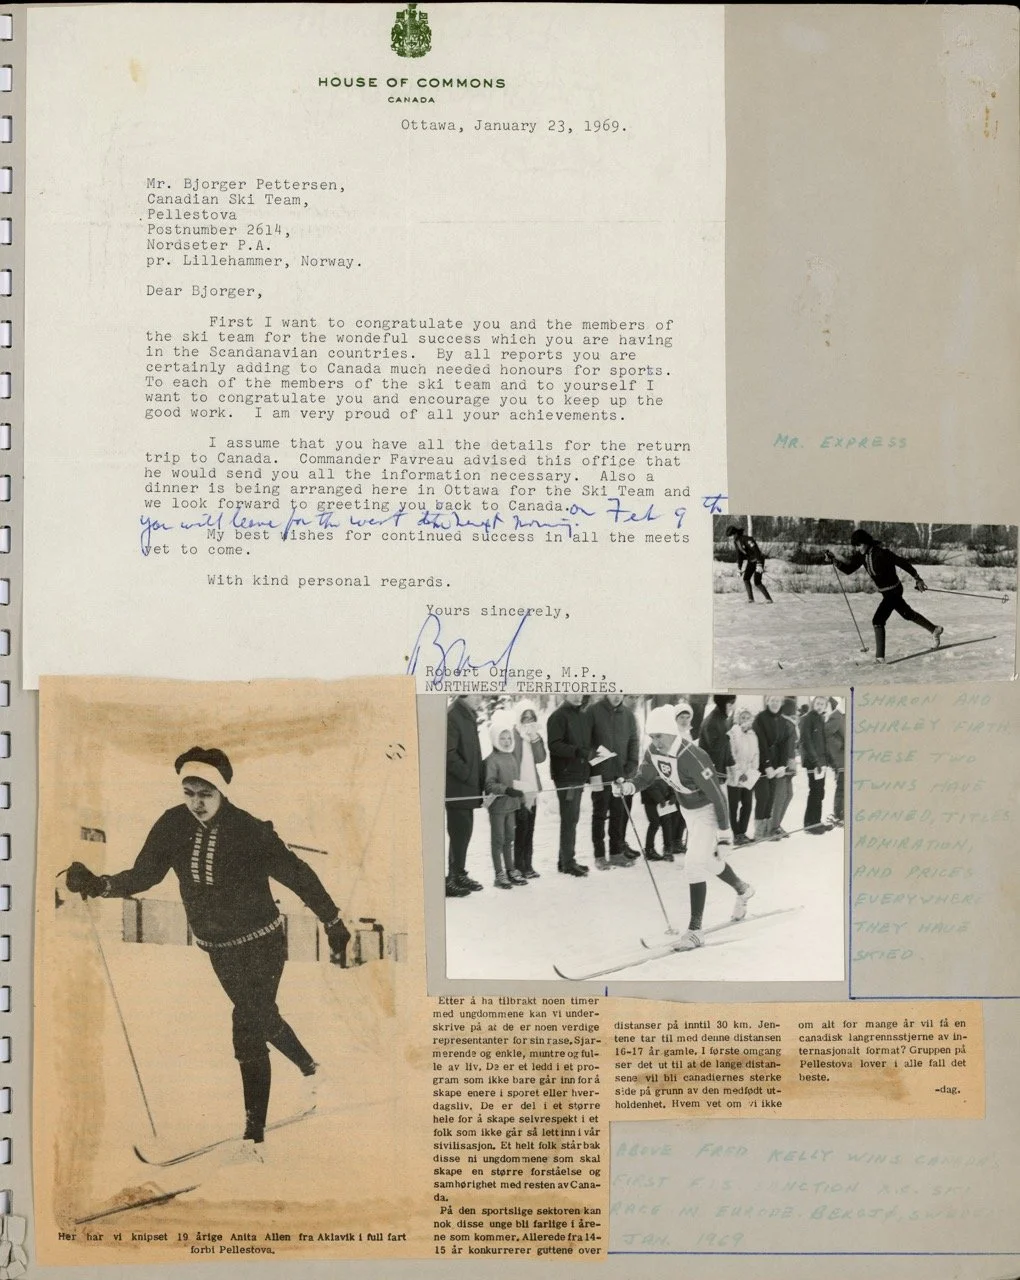 HOUSE OF COMMONS
CANADA
Ottawa, January 23, 1969.
Mr. Bjorger Pettersen,
Canadian Ski Team,
Pellestova
Postnumber 2614,
Nordseter P.A.
pr. Lillehammer, Norway.
Dear Bjorger,
First I want to congratulate you and the members of
the ski team for the wondeful success which you are having
in the Scandanavian countries. By all reports you are
certainly adding to Canada much needed honours for sports.
To each of the members of the ski team and to yourself I
want to congratulate you and encourage you to keep up the
good work. I am very proud of all your achievements.
I assume that you have all the details for the return
trip to Canada. Commander Favreau advised this office that
he would send you all the information necessary. Also a
dinner is being arranged here in Ottawa for the Ski Team and
we look forward to greeting you back to Canada. on Feb 9th
You will leave for the west the next morning.
My best wishes for continued success in all the meets
yet to come.
With kind personal regards.
Yours sincerely,
Robert Orange, M.P.,
NORTHWEST TERRITORIES.
MR. EXPRESS
SHARON AND
SHIRLEY FIRTH
THESE TWO
TWINS HAVE
GAINED, TITLES
ADMIRATION,
AND PRICES
EVERYWHERE
THEY HAVE
SKIED.
Her har vi knipset 19 årige Anita Allen fra Aklavik i full fart
forbi Pellestova.
Etter å ha tilbrakt noen timer
med ungdommene kan vi under-
skrive på at de er noen verdige
representanter for sin rase. Sjar-
merende og enkle, muntre og ful-
le av liv. De er et ledd i et pro-
gram som ikke bare går inn for å
skape enere i sporet eller hver-
dagsliv. De er del i et større
hele for å skape selvrespekt i et
folk som ikke går så lett inn i vår
sivilisasjon. Et helt folk står bak
disse ni ungdommene som skal
skape en større forståelse og
samhørighet med resten av Cana-
da.
På den sportslige sektoren kan
nok disse unge bli farlige i åre-
ne som kommer. Allerede fra 14-
15 år konkurrerer guttene over
distanser på inntil 30 km. Jen-
tene tar til med denne distansen
16-17 år gamle. I første omgang
ser det ut til at de lange distan-
sene vil bli canadiernes sterke
side på grunn av den medfødt ut-
holdenhet. Hvem vet om vi ikke
om alt for mange år vil få en
canadisk langrennsstjerne av in-
ternasjonalt format? Gruppen på
Pellestova lover i alle fall det
beste.
-dag.
ABOVE FRED KELLY WINS
FIRST F.I.S. X.C. SKI
RACE IN EUROPE.
JAN. 1969